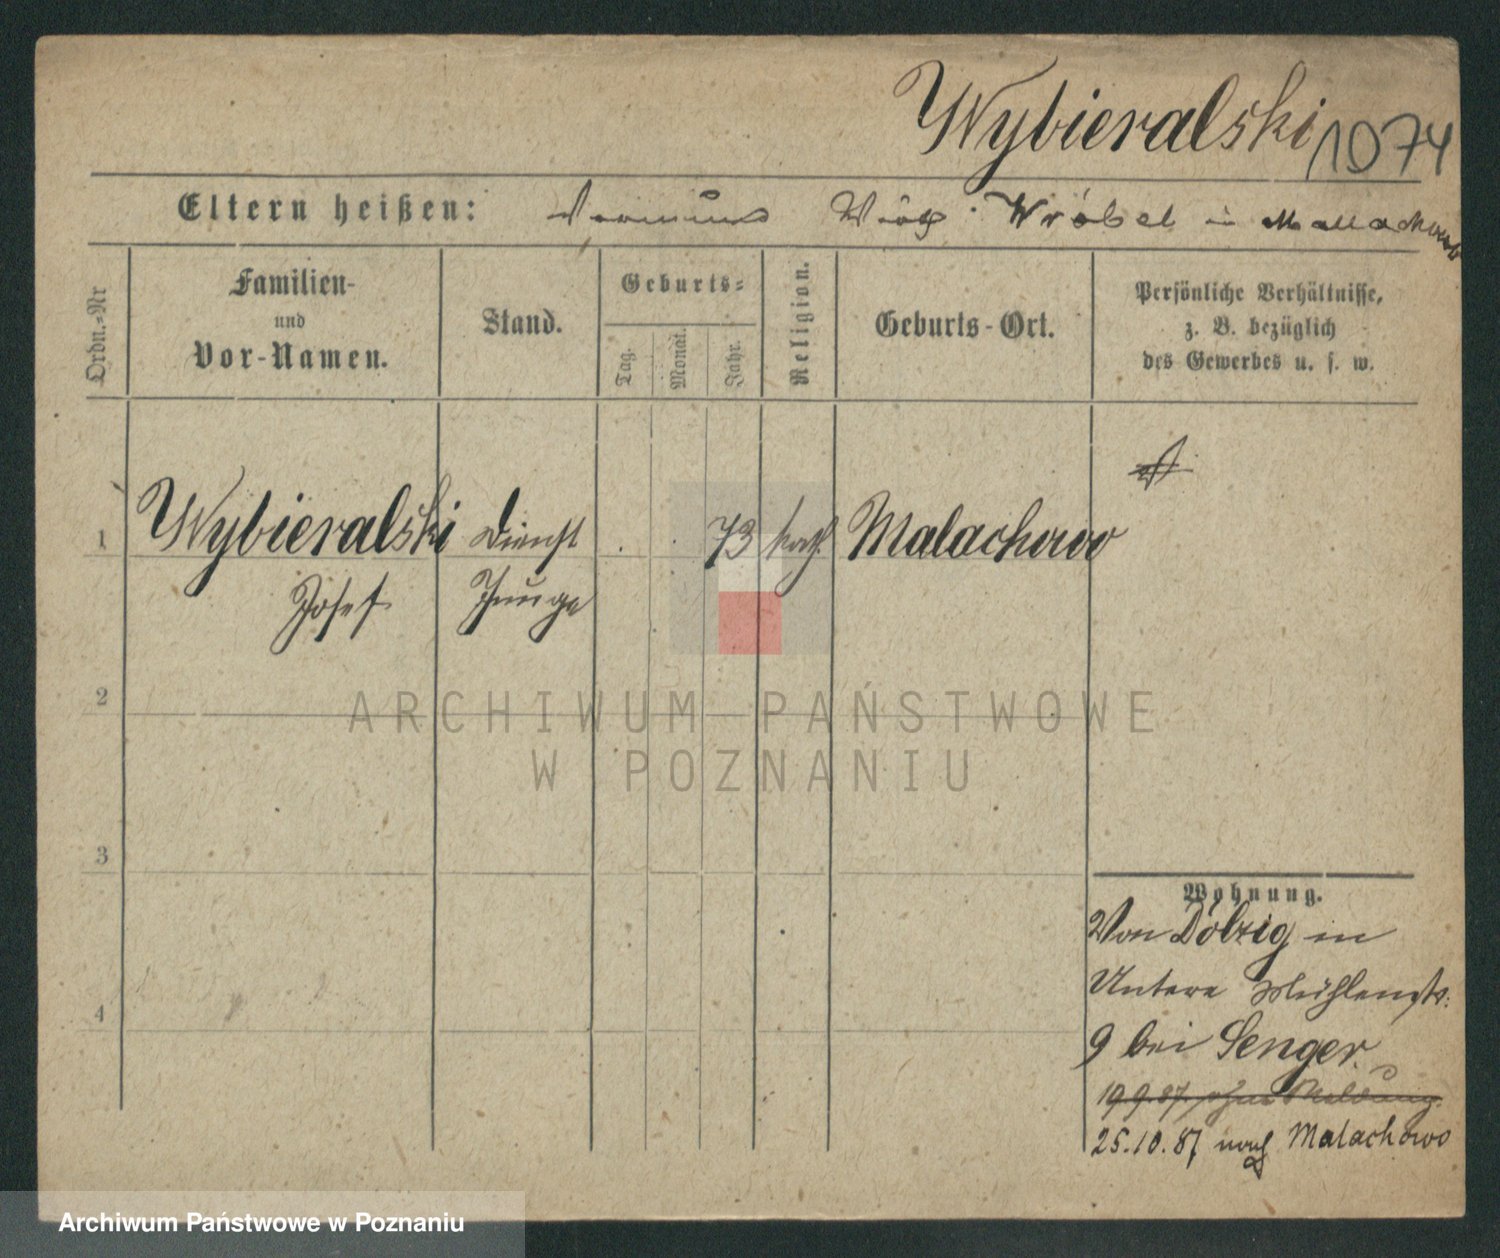 Wybieralski 1074
Eltern heißen: Wróbel in Malachowo
Ordn.-Nr
Familien-
und
Vor-Namen.
Stand.
Geburts-
Tag.
Monat.
Jahr.
Religion.
Geburts-Ort.
Persönliche Verhältnisse,
z. B. bezüglich
des Gewerbes u. s. w.
1 Wybieralski Dienst 73 kath. Malachowo
Josef Junge
2
ARCHIWUM PAŃSTWOWE
W POZNANIU
3
Wohnung.
Von Dolzig in
Untere Mühlenstr.
9 bei Senger.
4
19.9.87 ohne Meldung
25.10.87 nach Malachowo
Archiwum Państwowe w Poznaniu